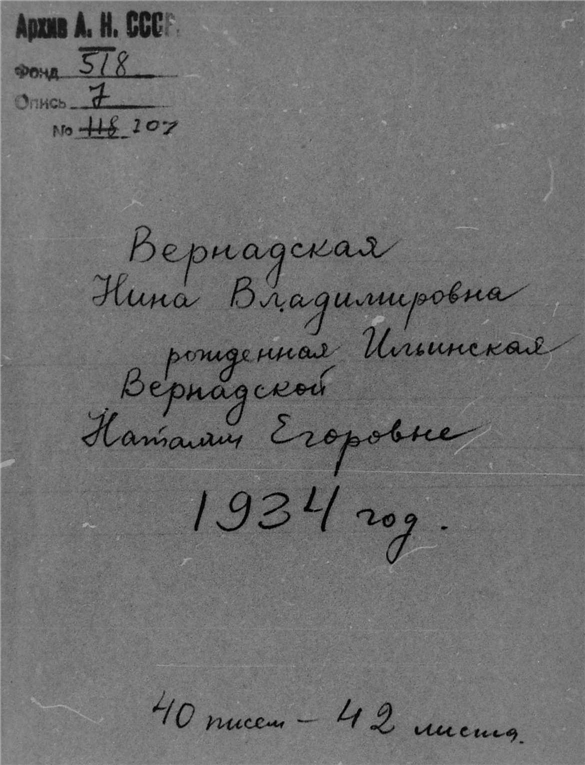 Архив А. Н. СССР.
Фонд 518
Опись 7
№ 118 207
Вернадская
Нина Владимировна
рожденная Ильинская
Вернадской
Наталии Егоровне
1934 год.
40 писем – 42 листа.